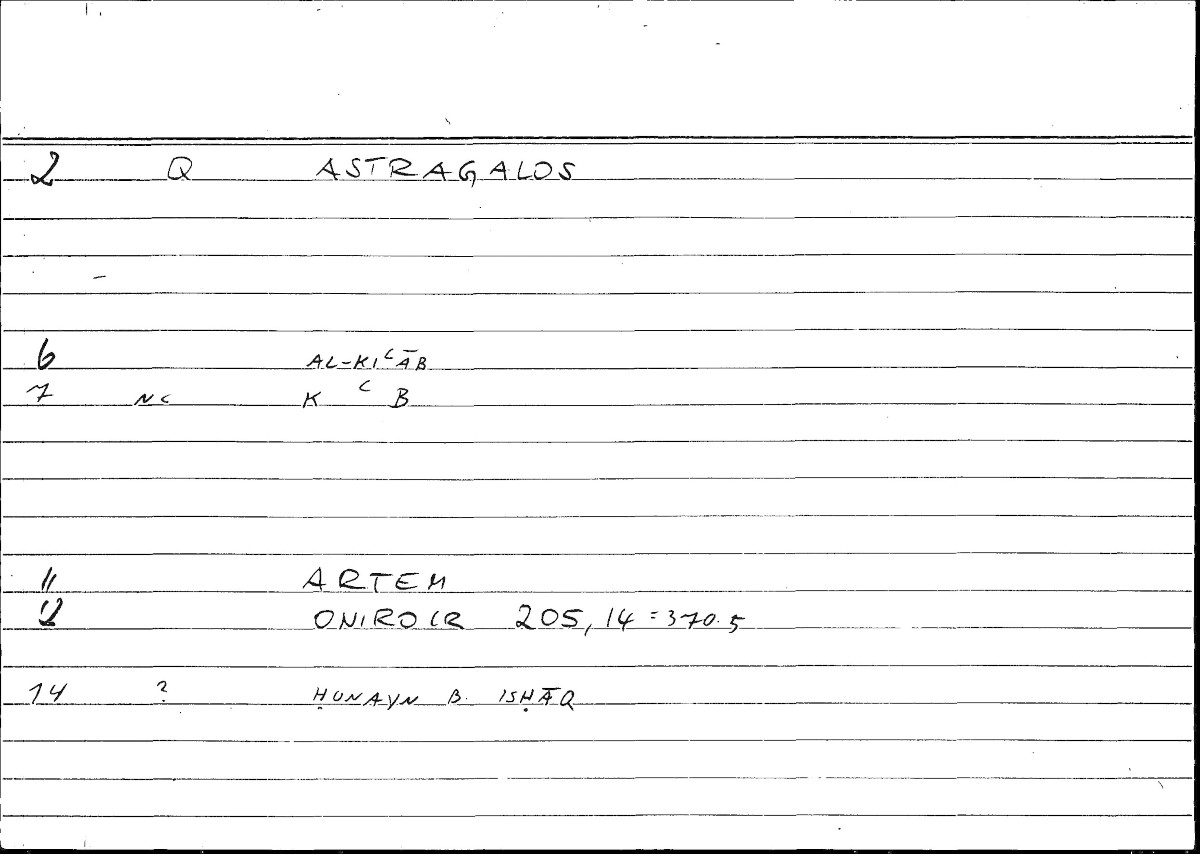 2 Q ASTRAGALOS
6 AL-KIʿĀB
7 NC K ʿ B
11 ARTEM
12 ONIROCR 205, 14 = 370.5
14 ? ḤUNAYN B. ISḤĀQ